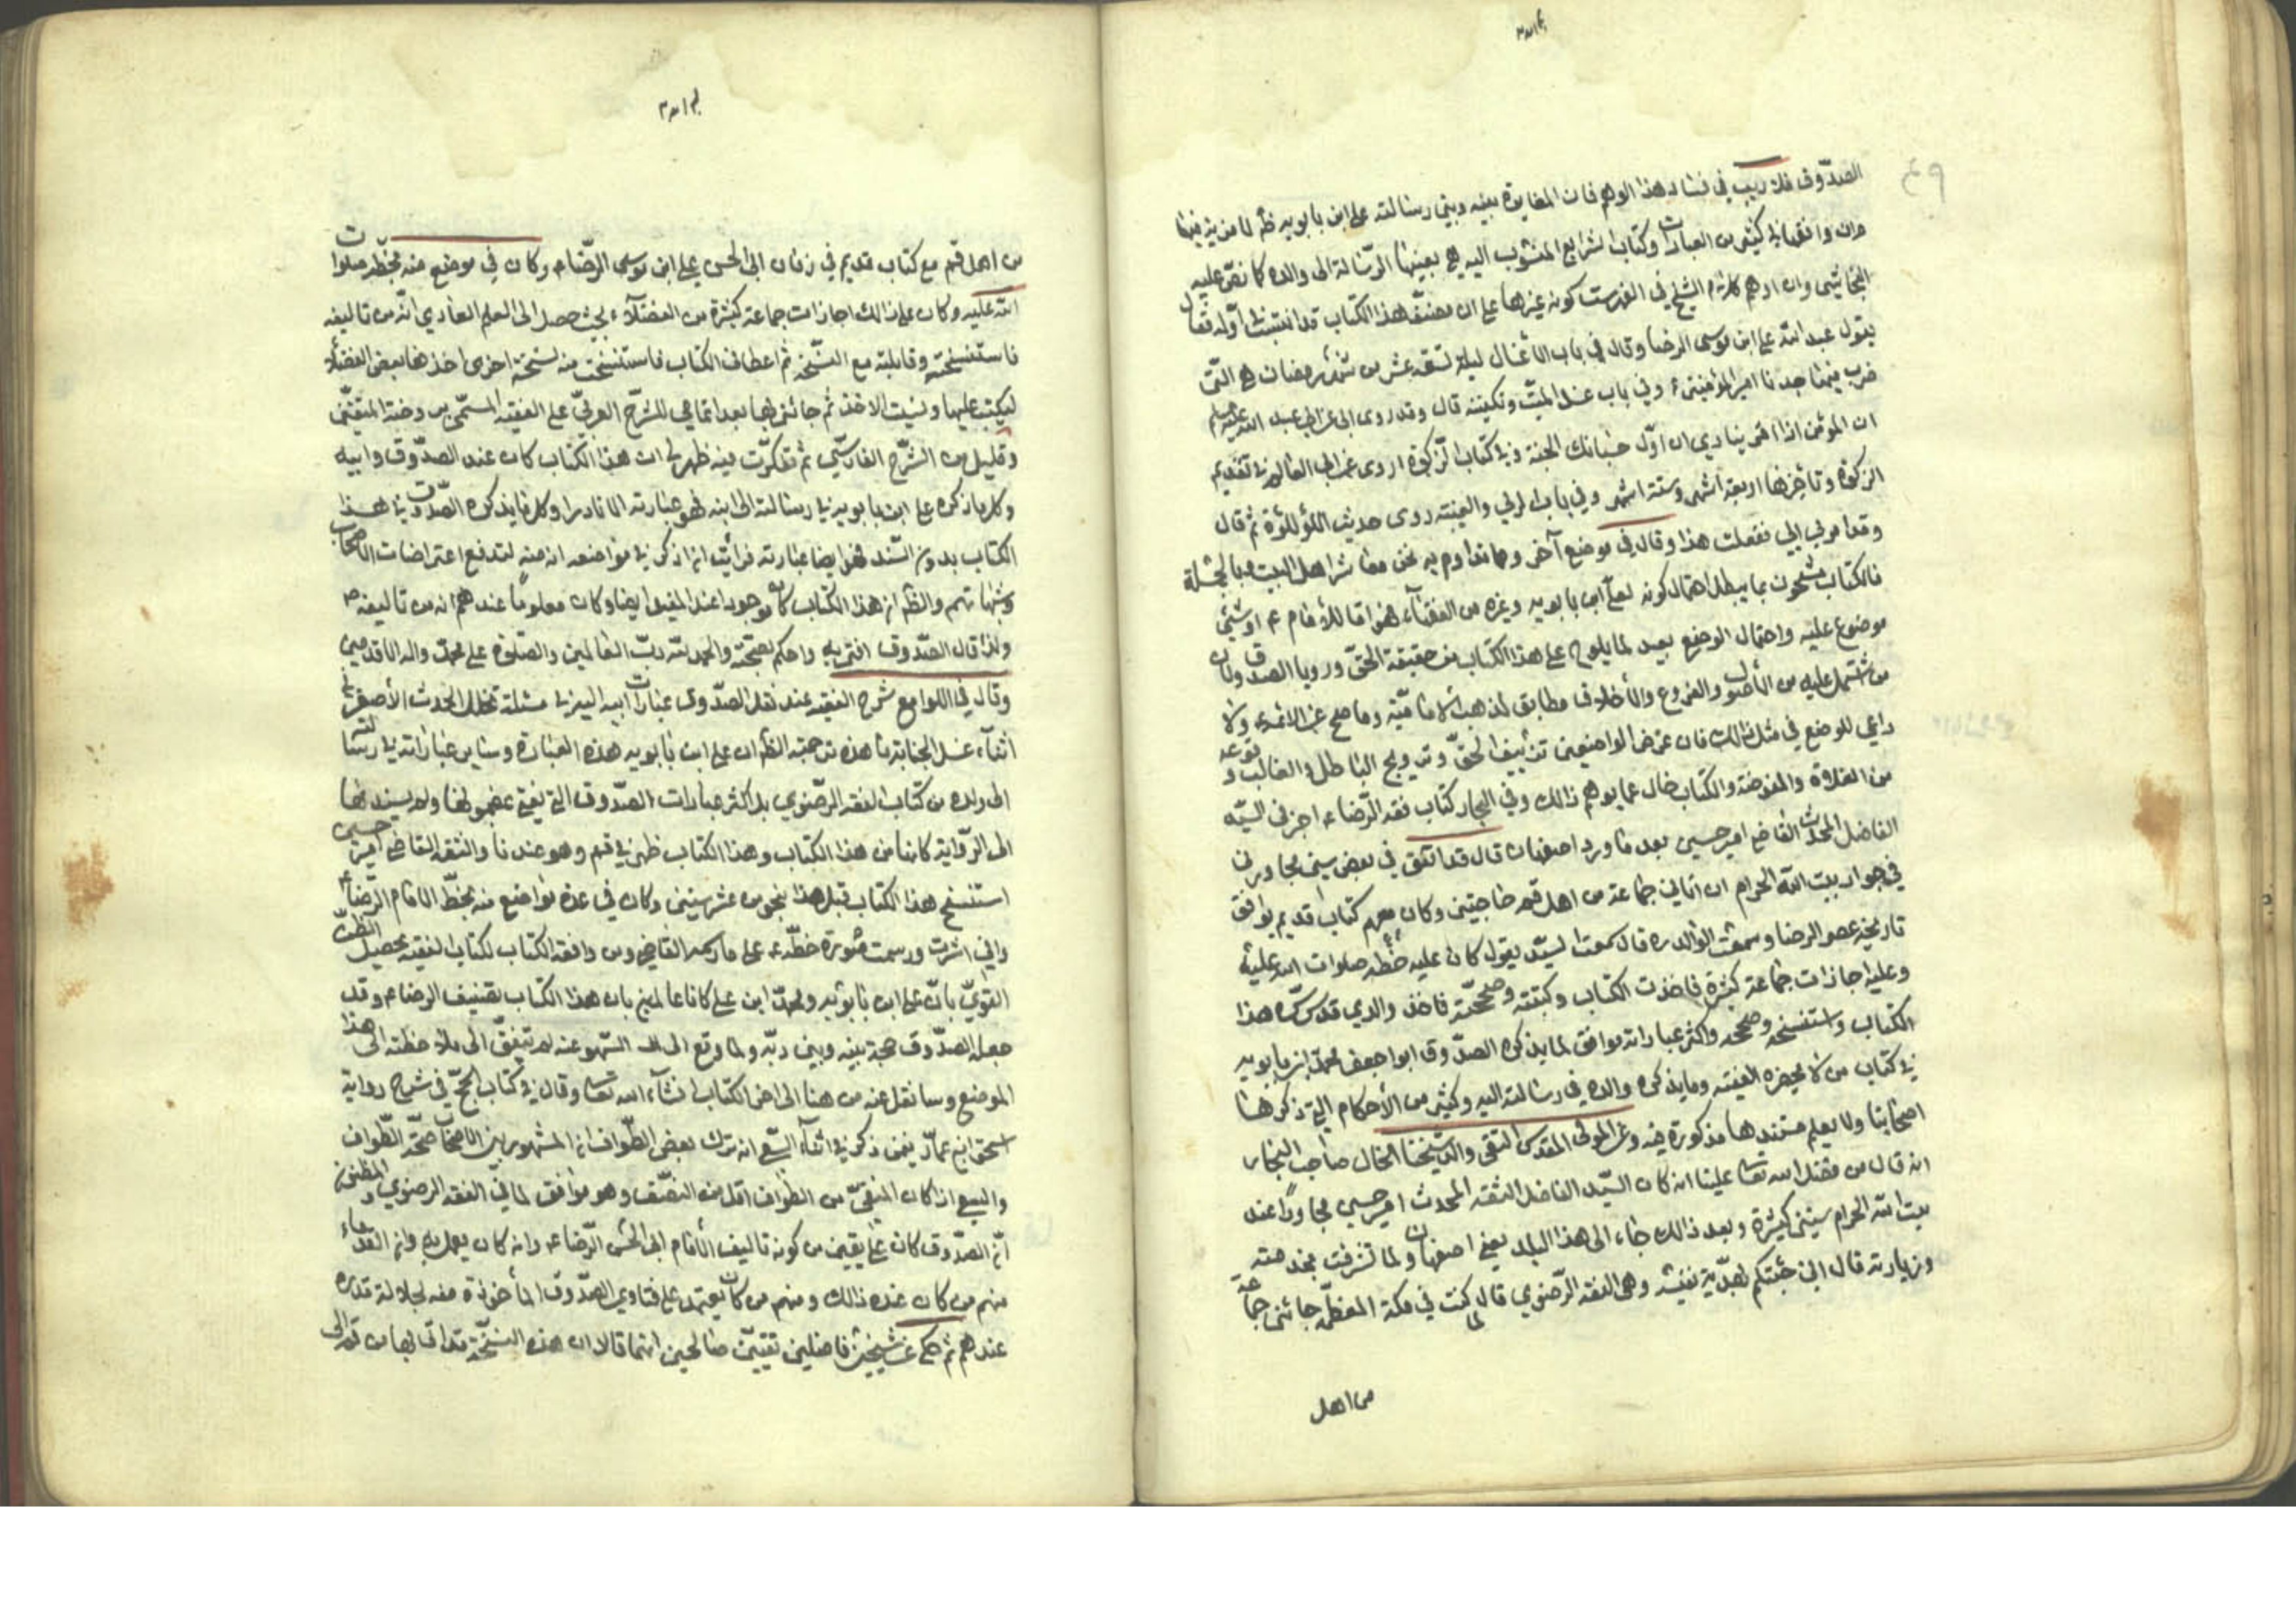 الصدّوق فلا ريب في فساد هذا الوهم فان المغايرة بينه وبين رسالته علي ابن بابويه ظ لا مزية فيها
وان وافقها في كثير من العبارات وكتاب الشرايع المنسوب اليه هي بعينها الرسالة الى والده كما نصّ عليه
النجاشي وان اوهم كلام الشيخ في الفهرست كونه غيرها على ان مصنف هذا الكتاب قد انتسب اوله فقال
يقول عبد الله علي ابن موسى الرضا وقال في باب الاغسال ليلة تسعة عشر من شهر رمضان هي التي
ضرب فيها جدنا امير المؤمنين ع وفي باب غسل الميّت وتكفينه قال وقد روى ابي عن ابي عبد الله عليه السلم
ان المؤمن اذا ينادي ان اوّل حبائك الجنة وفي كتاب الزكوة اروى عن ابي العالم في تقديم
الزكوة وتاخيرها اربعة اشهر وستة اشهر وفي باب الربي والعينة روى حديث اللؤلؤة ثم قال
وقد امرني ابي ففعلت هذا وقال في موضع آخر ومما نداوم به نحن معاشر اهل البيت وبالجملة
فالكتاب مشحون بما يبطل احتمال كونه لعلي ابن بابويه وغيره من الفقهاء فهو اما للأمام ع او شيئ
موضوع عليه واحتمال الوضع بعيد لما يلوح على هذا الكتاب من حقيقة الحقّ ورويا الصدق ولان
من شتمل عليه من الأصول والفروع والأخلاق مطابق لمذهب الامامية وما صح عن الائمة ولا
داعي للوضع في مثل ذالك فان غرض الواضعين تزييف الحقّ وترويج الباطل والغالب وقوعه
من الغلاة والمفوضة والكتاب خال عما يوهم ذالك وفي البحار كتاب فقه الرّضا ع اخبرني السيّد
الفاضل المحدث القاضي امير حسين بعد ما ورد اصفهان قال قد اتفق في بعض سني مجاورتي
في جوار بيت الله الحرام ان اتاني جماعة من اهل قم حاجين وكان معهم كتاب قديم يوافق
تاريخه عصر الرضا وسمعت الوالد ره قال سمعت السيّد يقول كان عليه خطه صلوات الله عليه
وعليه اجازات جماعة كثيرة فاخذت الكتاب وكتبته وصححّته فاخذ والدي قدس سّره هذا
الكتاب واستنسخه وصححه واكثر عباراته موافق لما يذكره الصدّوق ابو اجعفر محمد ابن بابويه
في كتاب من لا يحضره الفقيه وما يذكره والده في رسالته اليه وكثير من الأحكام التي ذكرها
اصحابنا ولا يعلم مستندها مذكورة فيه وعن المولى المقدس التقي والد شيخنا الخال صاحب البحار
انه قال من فضل الله تعا علينا انه كان السيّد الفاضل الثقة المحدث امير حسين مجاورًا عند
بيت الله الحرام سنين كثيرة وبعد ذالك جاء الى هذا البلد يعني اصفهان ولما تشرفت بخدمته
وزيارته قال اني جئتكم بهديّة نفيسة وهي الفقه الرّضوي قال لما كنت في مكة المعظّمة جائني جماعة
من اهل
من اهل قم مع كتاب قديم في زمان ابى الحسن علي ابن موسى الرّضا ع وكان في موضع منه بخطّه صلوات
الله عليه وكان على ذالك اجازات جماعة كثيرة من الفضلآء بحيث حصل الى العلم العادي انّه من تاليفه
فاستنسخته وقابلته مع النسّخه ثم اعطاني الكتاب فاستنسخت منه نسخة اخرى اخذ هابعض الفضلا
ليكتب عليها ونسيت الاخذ ثم جائني بها بعد اتمامي للشرّح العربيّ على الفقيه المسمّى بروضة المتقين
وقليل من الشّرح الفارسّي ثم تفكرّت فيه ظهر لي ان هذا الكتاب كان عند الصدّوق وابيه
وكل ما ذكره علي ابن بابويه في رسالته الى ابنه فهو عبارته الا نادرا وكل ما يذكره الصدّوق في هذا
الكتاب بدون السّند فهو ايضا عبارته فرأيت ان اذكر في مواضعه انه منه لتدفع اعتراضات الاصحاب
وشبهاتهم والظ ان هذا الكتاب كان موجودا عند المفيد ايضا وكان معلومًا عندهم انه من تاليفه ص
ولذا قال الصدّوق افتى به واحكم بصحّته والحمد لله ربّ العالمين والصّلوة على محمد واله الاقدمين
وقال في اللوامع شرح الفقيه عند نقل الصدّوق عبارات ابيه اليه في مسئلة تخلل الحدث الأصغر في
اثناء غسل الجنابة ما هذه ترجمته الظ ان علي ابن بابويه هذه العبارة وساير عباراته في رسالته
الى ولده من كتاب الفقه الرّضوي بل اكثر عبارات الصّدوق التي يفتي بمضمونها ولم يسندها
الى الرّواية كانها من هذا الكتاب وهذا الكتاب ظهر في قم وهو عندنا والثقه القاضي امير حسين
استنسخ هذا الكتاب قبل هذا بنحو من عشر سنين وكان في عدة مواضع منه بخطّ الامام الرّضا ع
واني اشرت ورسمت صورة خطّه ع على ما رسمه القاضي ومن وافقه الكتاب لكتاب الفقيه يحصيل الظنّ
القويّ بانّ علي ابن بابويه ومحمدّ ابن علي كانا عالمين بان هذا الكتاب تصنيف الرضا ع وقد
جعله الصدّوق حجة بينه وبين ربّه ولما وقع الى السّهو عنه لم يتفقّ الى ملاحظته الى هذا
الموضع وسانقل عنه من هنا الى اخر الكتاب انشاء الله تعا وقال في كتاب الحجّ في شرح رواية
اسحق ابن عمّار فيمن ذكر في اثناء السّعي انه ترك بعض الطّواف ان المشهور بين الاصحاب صحّة الطّواف
والسعي اذا كان المنقيّ من الطواف اقل من النصّف وهو موافق لما في الفقه الرضوي والمظنون
انّ الصدّوق كان على يقين من كونه تاليف الأمام ابى الحسن الرّضا ع وانه كان يعمل به وان القدماء
منهم من كان عنده ذالك ومنهم من كان يعتمد على فتاوي الصدّوق المأخوذة منه لجلالة قدره
عندهم ثم حكى عن شيخين فاضلين تقيّين صالحين انهما قالا ان هذه النسخّة قد اتى بها من قم الى